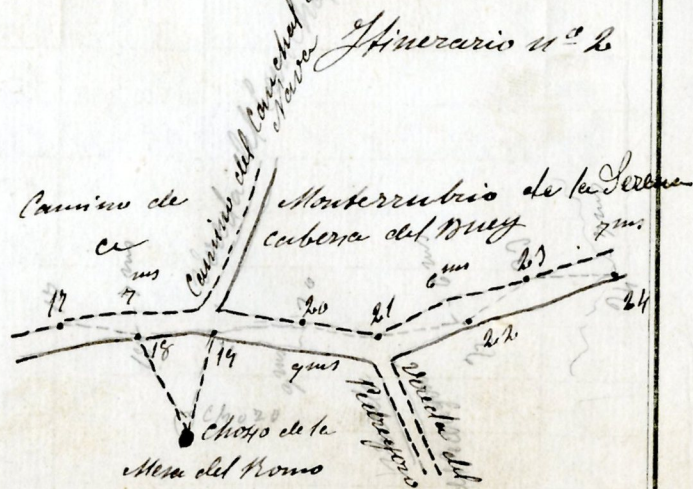 Itinerario nº 2
Camino del Canchal
Nava
Camino de Monterrubio de la Serena
a Cabeza del Buey
17
7 ms
18
19
20
9 ms
21
6 ms
22
23
7 ms
24
Vereda del
Pedregoso
Chozo de la
Mesa del Romo